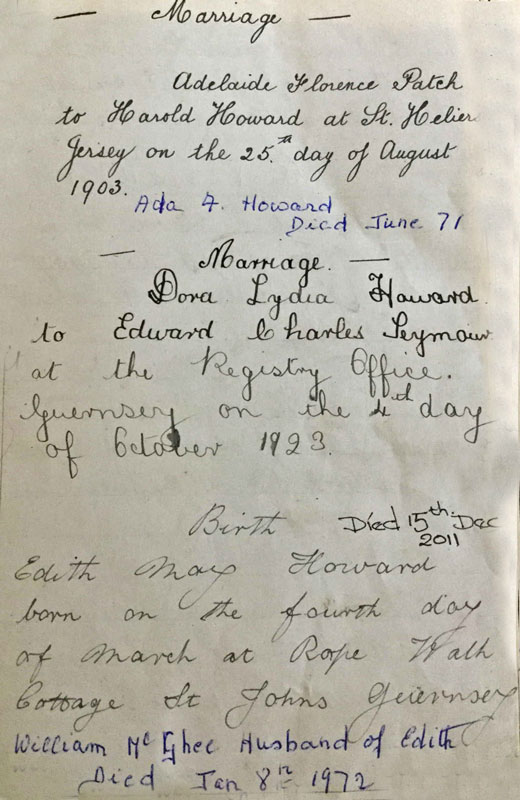 — Marriage —
Adelaide Florence Patch
to Harold Howard at St. Helier
Jersey on the 25.th day of August
1903.
Ada F. Howard
Died June 71
— Marriage. —
Dora Lydia Howard.
to Edward Charles Seymour
at the Registry Office.
Guernsey on the 4th day
of October 1923.
Birth
Died 15th Dec
2011
Edith May Howard
born on the fourth day
of March at Rope Walk
Cottage St Johns Guernsey
William Mc Ghee Husband of Edith
Died Jan 8th 1972